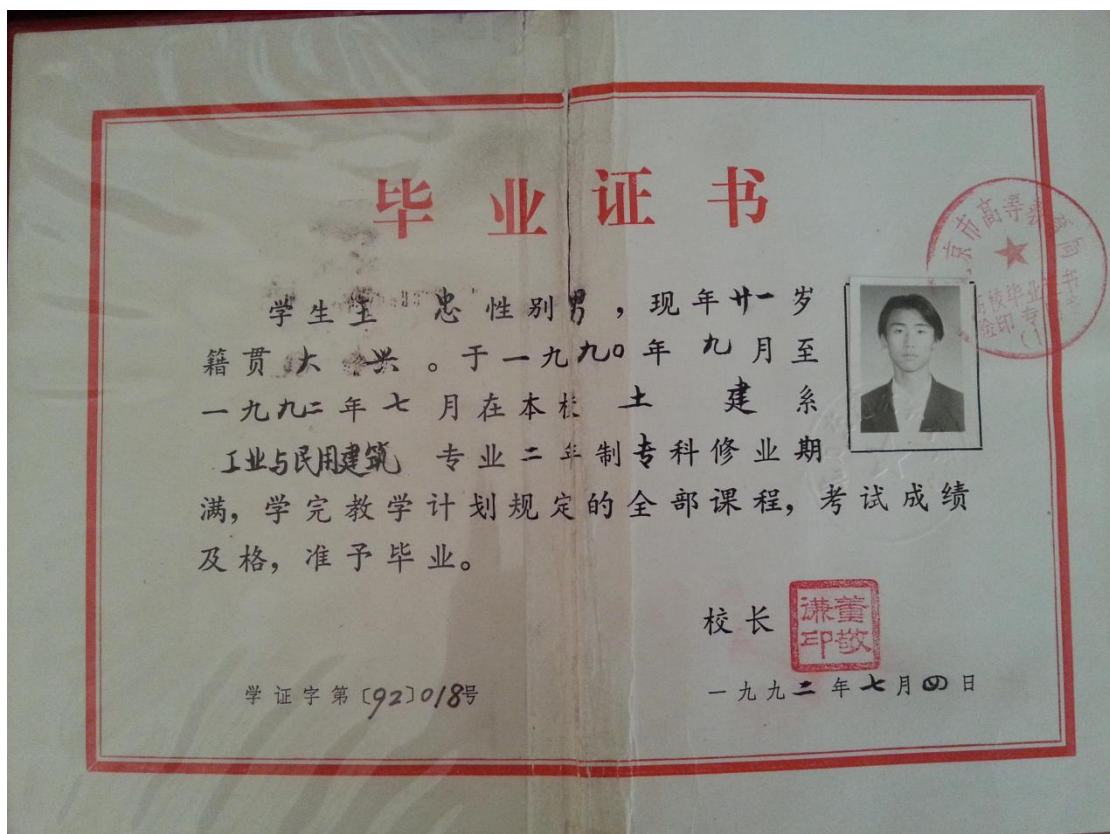 毕业证书
学生王 忠性别男，现年廿一岁
籍贯大兴。于一九九〇年九月至
一九九二年七月在本校土建系
工业与民用建筑专业二年制专科修业期
满，学完教学计划规定的全部课程，考试成绩
及格，准予毕业。
校长
董敬谦印
学证字第〔92〕018号
一九九二年七月四日
京市高等教育局